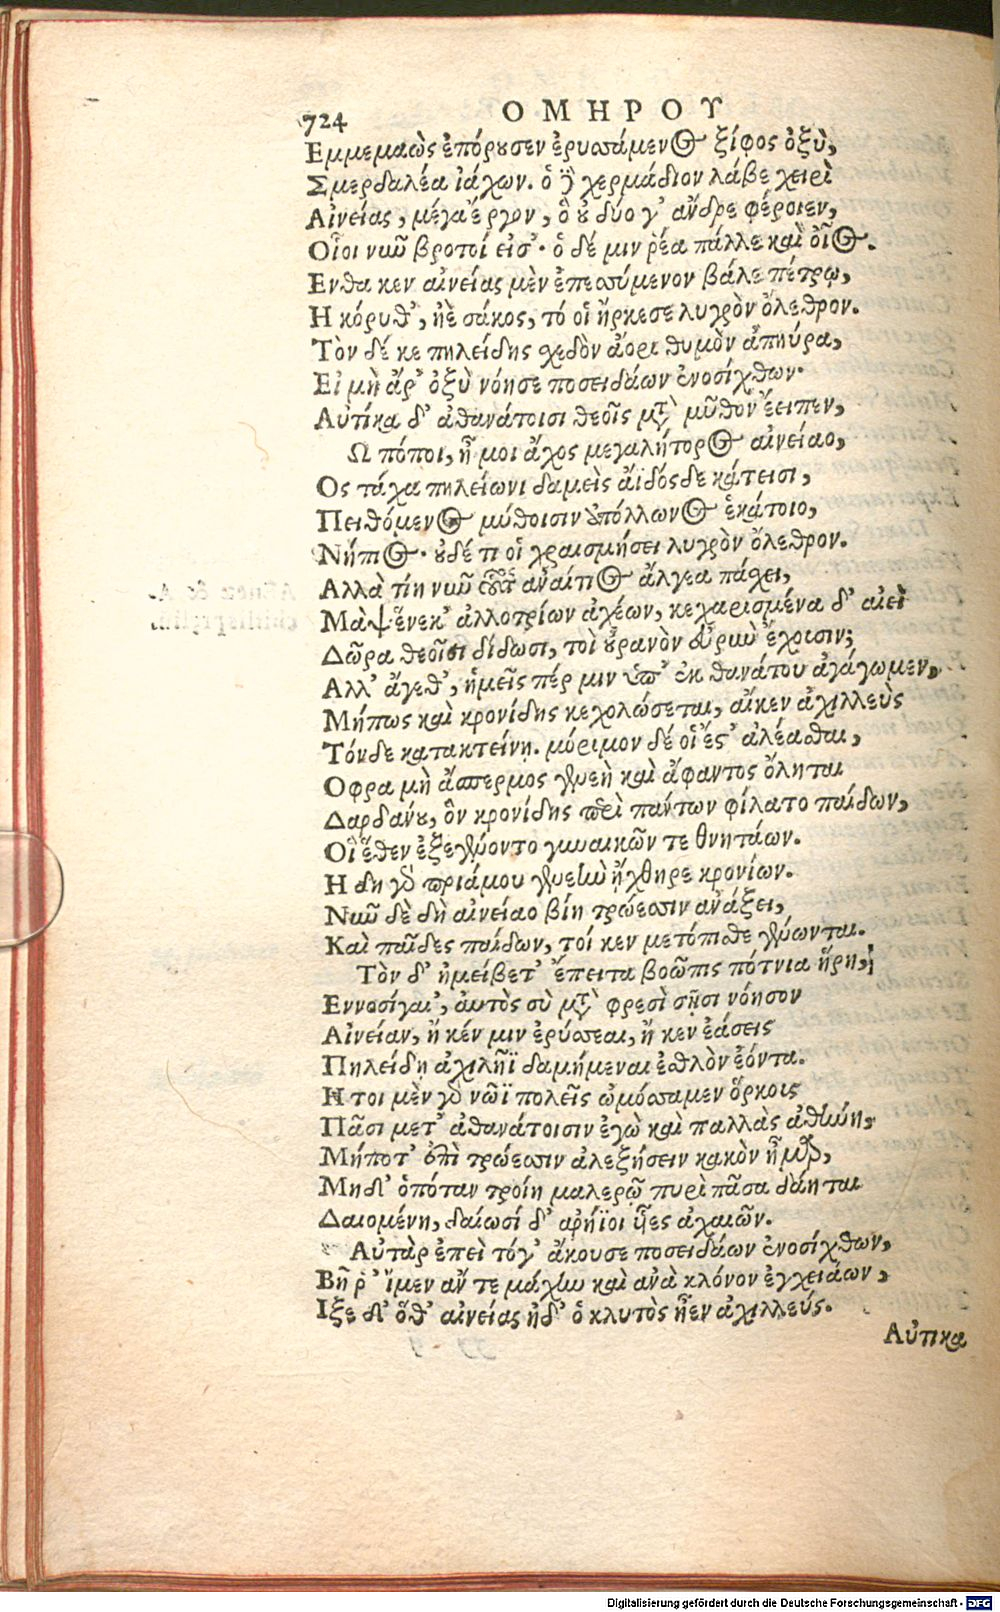 724 ΟΜΗΡΟΥ
Εμμεμαὼς ἐπόρουσεν ἐρυσσάμενος ξίφος ὀξὺ,
Σμερδαλέα ἰάχων. ὁ δὲ χερμάδιον λάβε χειρὶ
Αἰνείας, μέγα ἔργον, ὃ οὐ δύο γ' ἄνδρε φέροιεν,
Οἷοι νῦν βροτοί εἰσ'· ὁ δέ μιν ῥέα πάλλε καὶ οἶος.
Ενθα κεν αἰνείας μὲν ἐπεσσύμενον βάλε πέτρῳ,
Η κόρυθ', ἠὲ σάκος, τό οἱ ἤρκεσε λυγρὸν ὄλεθρον.
Τὸν δέ κε πηλείδης σχεδὸν ἄορι θυμὸν ἀπηύρα,
Εἰ μὴ ἄρ' ὀξὺ νόησε ποσειδάων ἐνοσίχθων·
Αὐτίκα δ' ἀθανάτοισι θεοῖς μετὰ μῦθον ἔειπεν,
Ω πόποι, ἦ μοι ἄχος μεγαλήτορος αἰνείαο,
Ος τάχα πηλείωνι δαμεὶς ἄϊδόςδε κάτεισι,
Πειθόμενος μύθοισιν ἀπόλλωνος ἑκάτοιο,
Νήπιος· οὐδέ τι οἱ χραισμήσει λυγρὸν ὄλεθρον.
Αλλὰ τίη νῦν οὗτος ἀναίτιος ἄλγεα πάσχει,
Μὰψ ἕνεκ' ἀλλοτρίων ἀχέων, κεχαρισμένα δ' αἰεὶ
Δῶρα θεοῖσι δίδωσι, τοὶ οὐρανὸν εὐρὺν ἔχουσιν;
Αλλ' ἄγεθ', ἡμεῖς πέρ μιν ὑπ' ἐκ θανάτου ἀγάγωμεν,
Μήπως καὶ κρονίδης κεχολώσεται, αἴκεν ἀχιλλεὺς
Τόνδε κατακτείνῃ. μόριμον δέ οἵ ἐς' ἀλέασθαι,
Οφρα μὴ ἄσπερμος γενεὴ καὶ ἄφαντος ὄληται
Δαρδάνου, ὃν κρονίδης περὶ πάντων φίλατο παίδων,
Οἳ ἕθεν ἐξεγένοντο γυναικῶν τε θνητάων.
Η δη γὰρ πριάμου γενεὴν ἤχθηρε κρονίων.
Νῦν δὲ δὴ αἰνείαο βίη τρώεσσιν ἀνάξει,
Καὶ παῖδες παίδων, τοί κεν μετόπισθε γένωνται.
Τὸν δ' ἠμείβετ' ἔπειτα βοῶπις πότνια ἥρη,
Εννοσίγαι', αὐτὸς σὺ μετὰ φρεσὶ σῇσι νόησον
Αἰνείαν, ἤ κέν μιν ἐρύσσεαι, ἤ κεν ἐάσεις
Πηλείδῃ ἀχιλῆϊ δαμήμεναι ἐσθλὸν ἐόντα.
Η τοι μὲν γὰρ νῶϊ πολεῖς ὠμόσσαμεν ὅρκους
Πᾶσι μετ' ἀθανάτοισιν ἐγὼ καὶ παλλὰς ἀθήνη,
Μήποτ' ἐπὶ τρώεσσιν ἀλεξήσειν κακὸν ἦμαρ,
Μηδ' ὁπόταν τροίη μαλερῷ πυρὶ πᾶσα δάηται
Δαιομένη, δαίωσί δ' ἀρήϊοι υἷες ἀχαιῶν.
Αὐτὰρ ἐπεὶ τόγ' ἄκουσε ποσειδάων ἐνοσίχθων,
Βῆ ῥ' ἴμεν ἄν τε μάχην καὶ ἀνὰ κλόνον ἐγχειάων,
Ιξε δ' ὅθ' αἰνείας ἠδ' ὁ κλυτὸς ἦεν ἀχιλλεύς.
Αὐτίκα
Digitalisierung gefördert durch die Deutsche Forschungsgemeinschaft - DFG